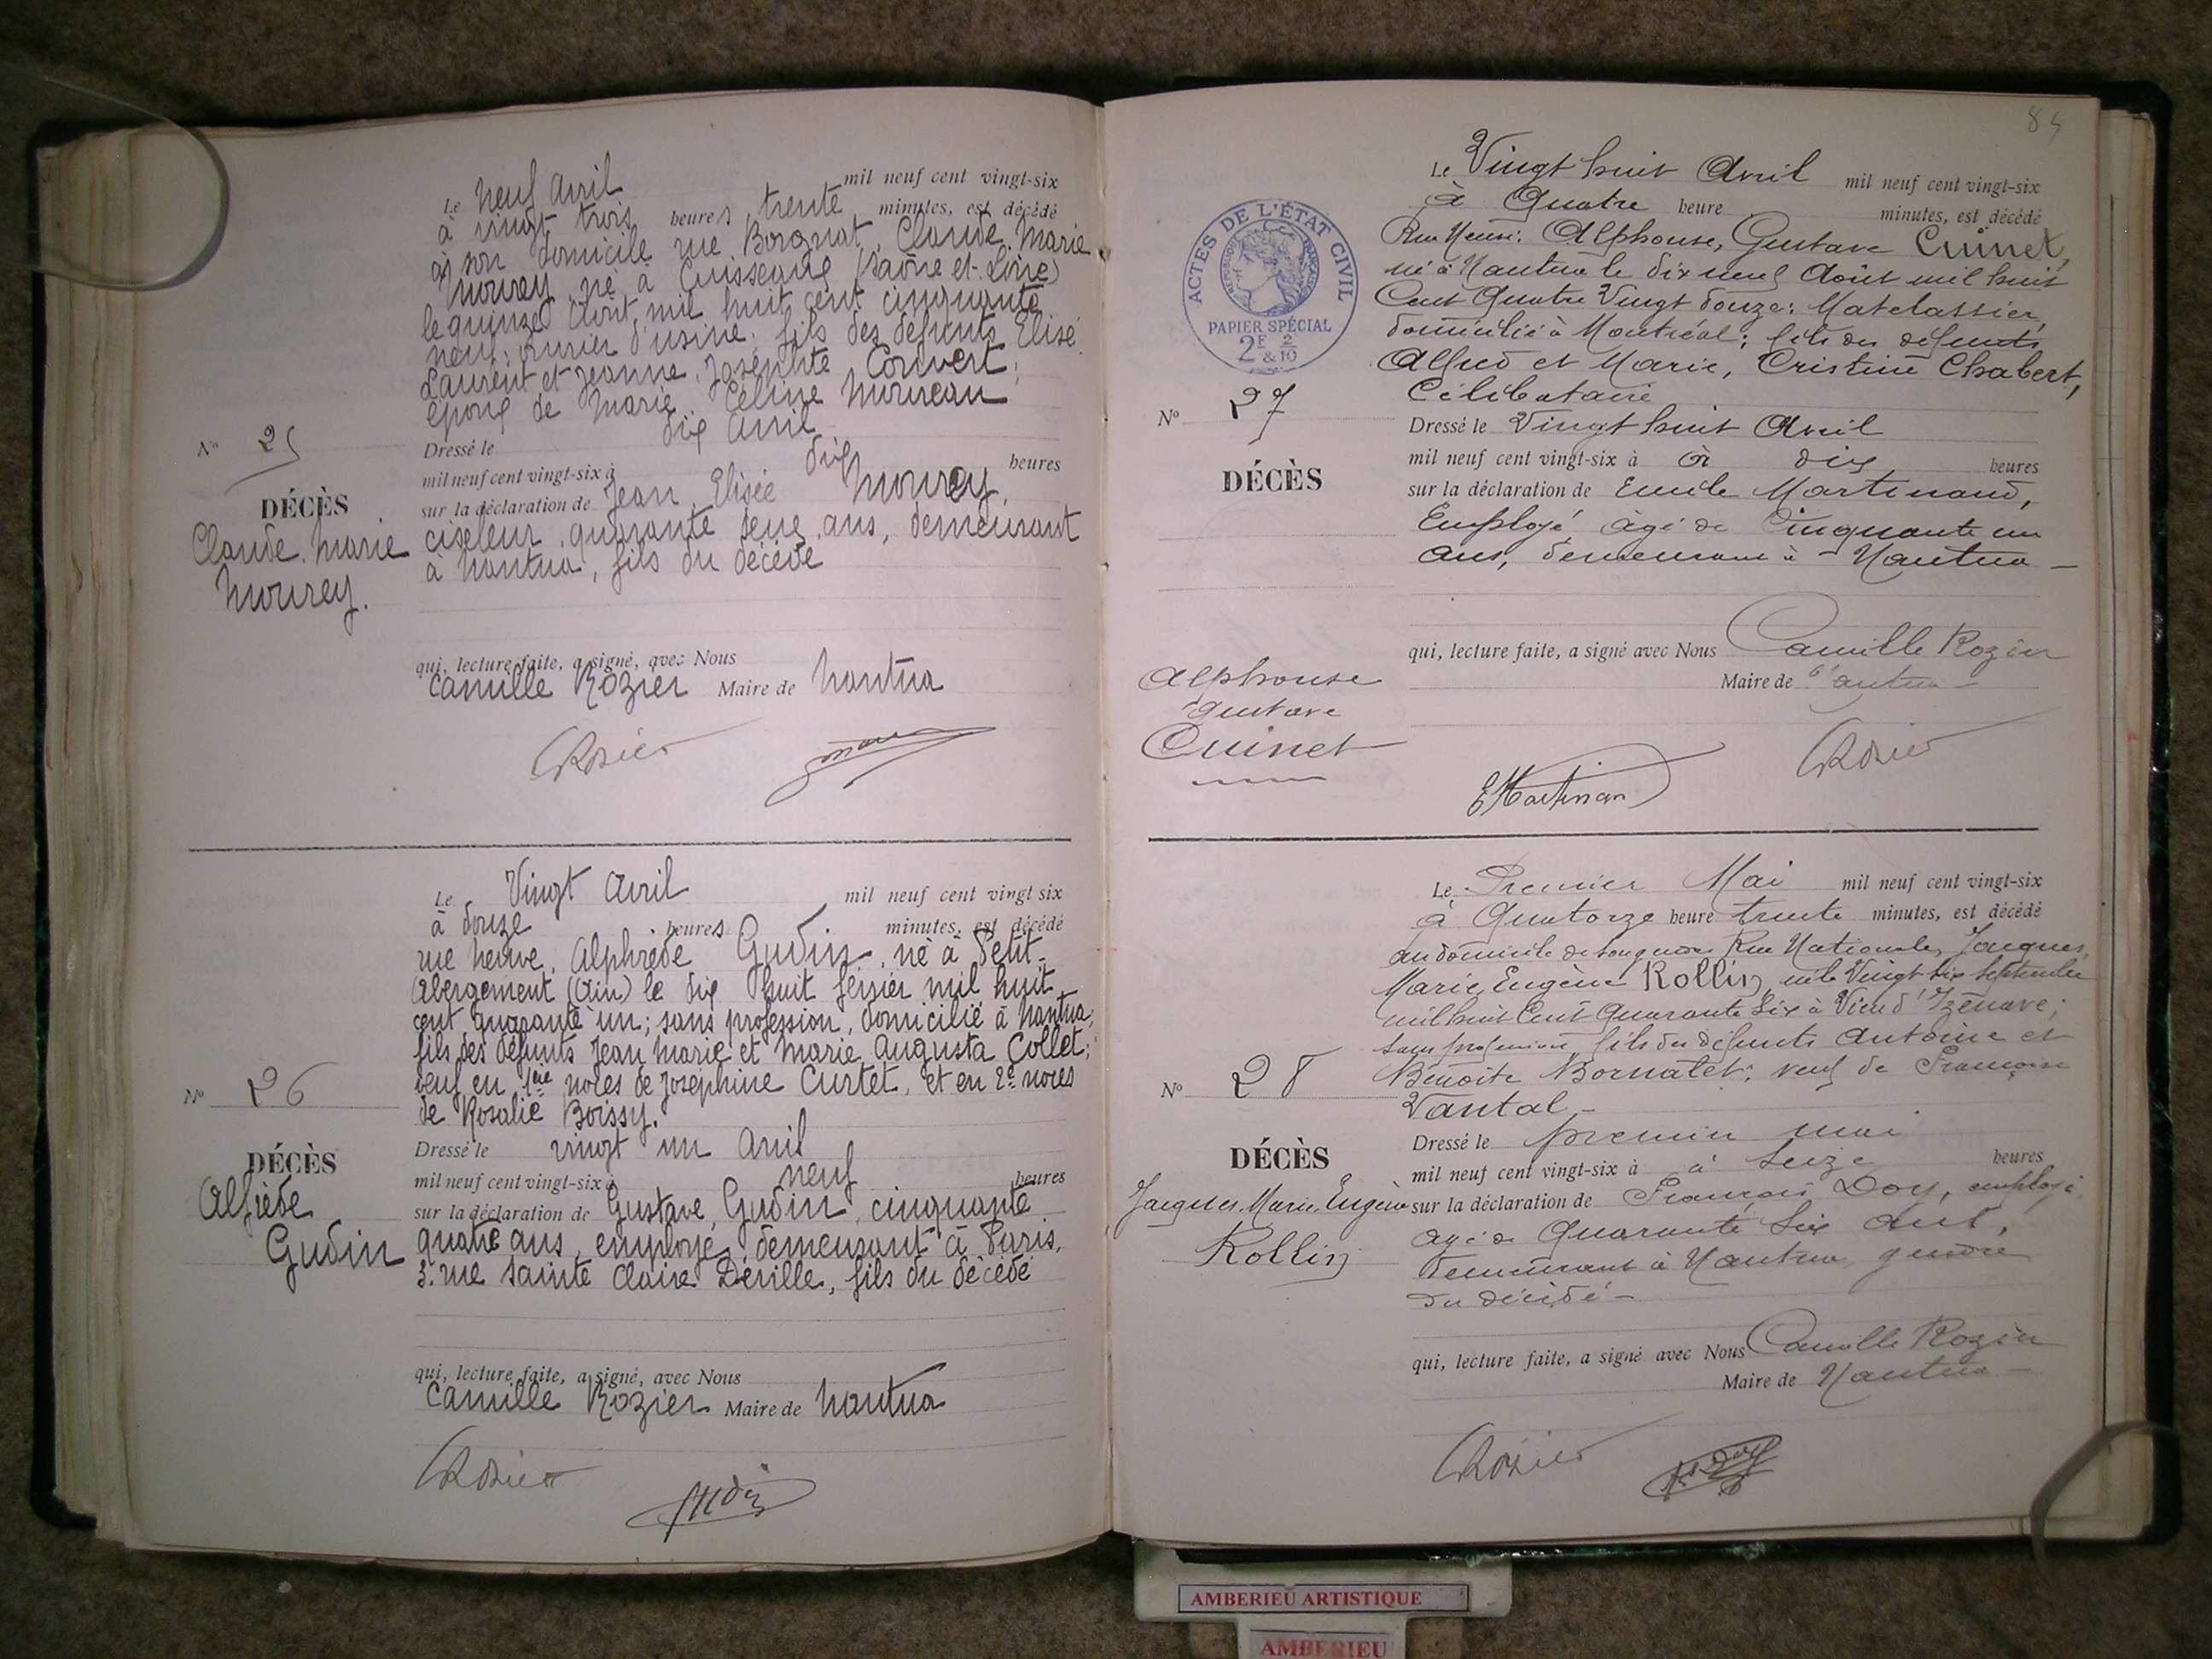 Le neuf Avril mil neuf cent vingt-six
à vingt trois heures trente minutes, est décédé
à son domicile rue Borgnat, Claude. Marie
Mourey, né à Cuisseaux (Saône et-Loire)
le quinze Août mil huit cent cinquante
neuf; ouvrier d'usine; fils des défunts Elisé
Laurent et Jeanne, Joséphte Convert;
époux de Marie Céline Moureau
Dressé le dix Avril
mil neuf cent vingt-six à dix heures
sur la déclaration de Jean, Elisée Mourey,
ciseleur, quarante seize ans, demeurant
à Nantua, fils du décédé
N° 25
DÉCÈS
Claude. Marie
Mourey.
qui, lecture faite, a signé, avec Nous
Camille Rozier Maire de Nantua
CRozier
Le Vingt Avril mil neuf cent vingt six
à douze heures minutes, est décédé
rue neuve, Alphrède Gudin, né à Petit-
Abergement (Ain) le dix huit février mil huit
cent quarante un; sans profession, domicilié à Nantua;
fils des défunts Jean Marie et Marie Augusta Collet;
veuf en 1ère noces de Joséphine Curtet, et en 2e noces
de Rosalie Boissy.
N° 26
DÉCÈS
Alfrède
Gudin
Dressé le vingt un Avril
mil neuf cent vingt-six à neuf heures
sur la déclaration de Gustave, Gudin, cinquante
quatre ans, employé, demeurant à Paris,
3. rue Sainte Claire Déville, fils du décédé
qui, lecture faite, a signé, avec Nous
Camille Rozier Maire de Nantua
CRozier
Gudin
84
ACTES DE L'ÉTAT CIVIL
PAPIER SPÉCIAL
2F 2
& 10
Le Vingt huit Avril mil neuf cent vingt-six
à Quatre heure minutes, est décédé
Rue Neuve: Alphonse, Gustave Cuinet,
né à Nantua le dix neuf Août mil huit
Cent Quatre Vingt douze: Matelassier,
domicilié à Montréal; fils des défunts
Alfred et Marie, Cristine Chabert,
Célibataire
N° 27
DÉCÈS
Alphonse
Gustave
Cuinet
Dressé le Vingt huit Avril
mil neuf cent vingt-six à à dix heures
sur la déclaration de Emile Martinand,
Employé âgé de Cinquante un
ans, demeurant à - Nantua -
qui, lecture faite, a signé avec Nous Camille Rozier
Maire de Nantua -
EMartinan
CRozier
Le Premier Mai mil neuf cent vingt-six
à Quatorze heure trente minutes, est décédé
au domicile de son gendre Rue Nationale, Jacques,
Marie, Eugène Rollin, né le Vingt six Septembre
mil huit Cent Quarante Six à Vieu d'Izenave;
sans profession, fils des défunts Antoine et
Benoite Bornatet; veuf de Françoise
Vantal -
N° 28
DÉCÈS
Jacques, Marie, Eugène
Rollin
Dressé le premier mai
mil neuf cent vingt-six à à Seize heures
sur la déclaration de François Doy, employé
âgé de Quarante Six ans,
demeurant à Nantua gendre
du décédé -
qui, lecture faite, a signé avec Nous Camille Rozier
Maire de Nantua -
CRozier
AMBERIEU ARTISTIQUE
AMBERIEU